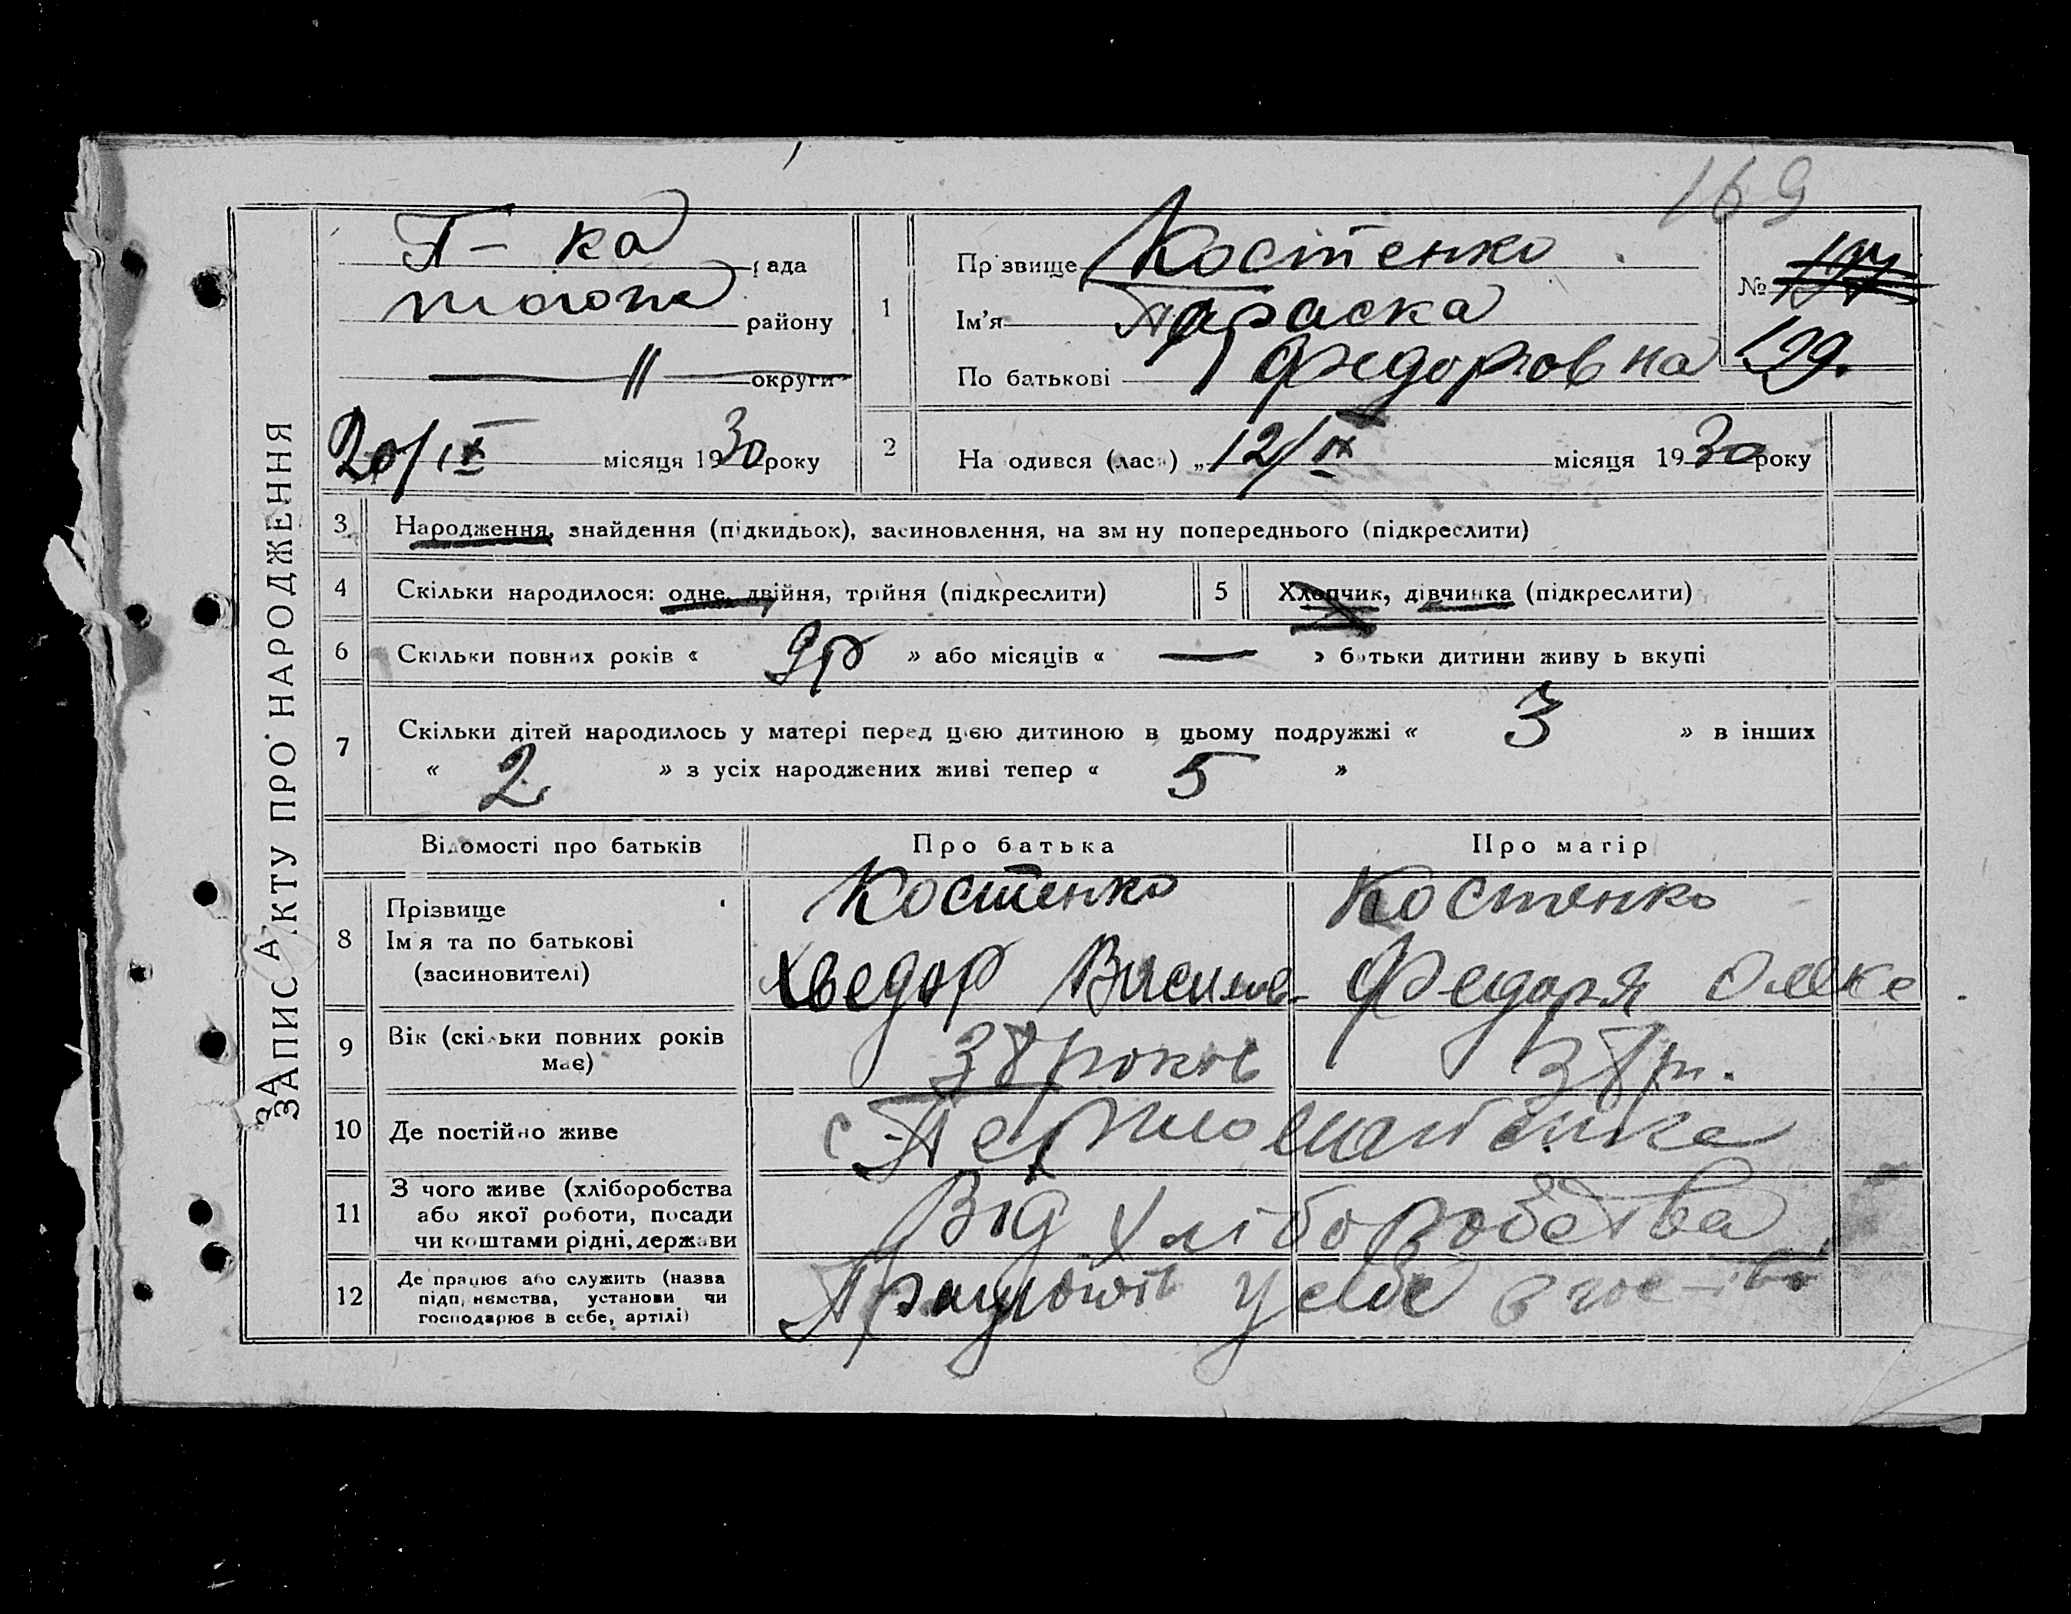 169
ЗАПИС АКТУ ПРО НАРОДЖЕННЯ
П-ка рада
району
округи
20/IX місяця 1930 року
1 Прізвище Костенко
Ім'я Параска
По батькові Федоровна
№
199.
2 Народився (лася) „12/IX місяця 1930 року
3 Народження, знайдення (підкидьок), засиновлення, на зміну попереднього (підкреслити)
4 Скільки народилося: одне, двійня, трійня (підкреслити) 5 Хлопчик, дівчинка (підкреслити)
6 Скільки повних років « 9 р » або місяців « — » батьки дитини живуть вкупі
7 Скільки дітей народилось у матері перед цією дитиною в цьому подружжі « 3 » в інших
« 2 » з усіх народжених живі тепер « 5 »
Відомості про батьків Про батька Про матір
8 Прізвище
Ім'я та по батькові
(засиновителі)
Костенко Костенко
Хведор Василов. Федоря Олекс
9 Вік (скільки повних років
має)
38 років 38 р.
10 Де постійно живе с Первомайська
11 З чого живе (хліборобства
або якої роботи, посади
чи коштами рідні, держави
Від хліборобства
12 Де працює або служить (назва
підприємства, установи чи
господарює в себе, артілі)
Працюють у себе в